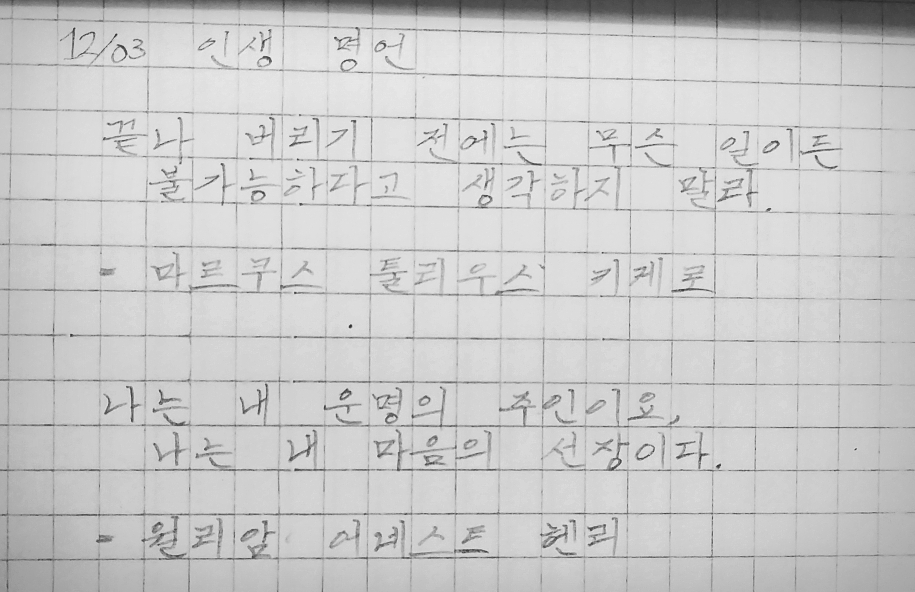 12/03 인생 명언
끝나 버리기 전에는 무슨 일이든
불가능하다고 생각하지 말라.
- 마르쿠스 툴리우스 키케로
나는 내 운명의 주인이요,
나는 내 마음의 선장이다.
- 윌리암 어네스트 헨리